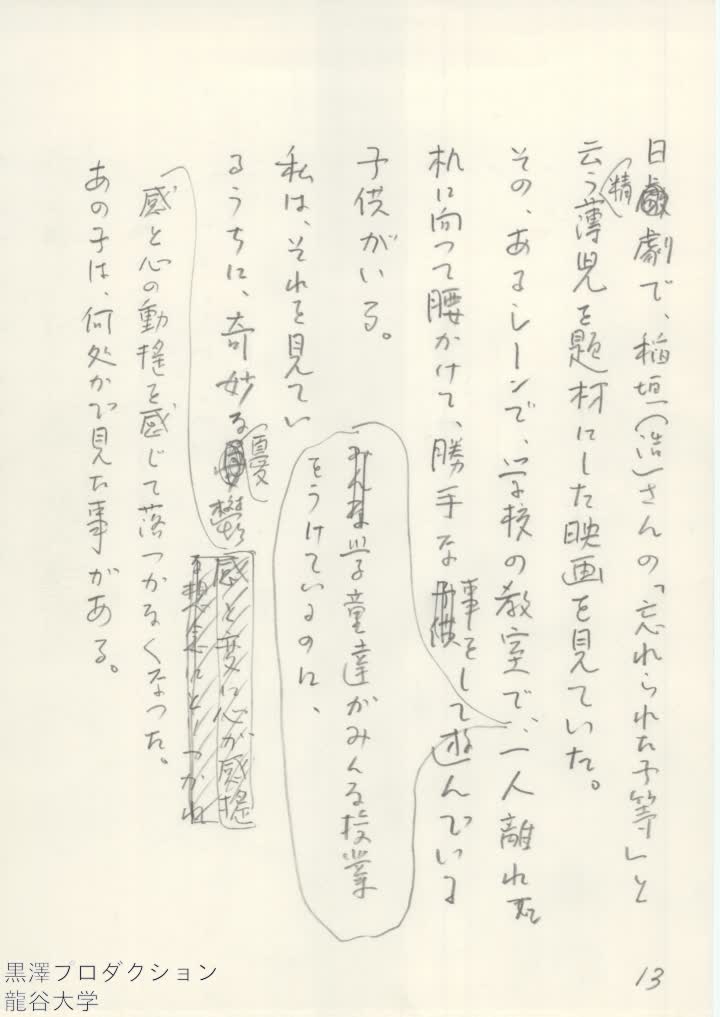 日劇で、稲垣(浩)さんの「忘れられた子等」と
云う精薄児を題材にした映画を見ていた。
その、あるシーンで、学校の教室で、一人離れた
机に向って腰かけて、勝手な事をして遊んでいる
子供がいる。
みんな学童達がみんな授業
をうけているのに、
私は、それを見てい
るうちに、奇妙な憂鬱
感と変に心が感揺
感と心の動揺を感じて落つかなくなった。
あの子は、何処かで見た事がある。
13
黒澤プロダクション
龍谷大学